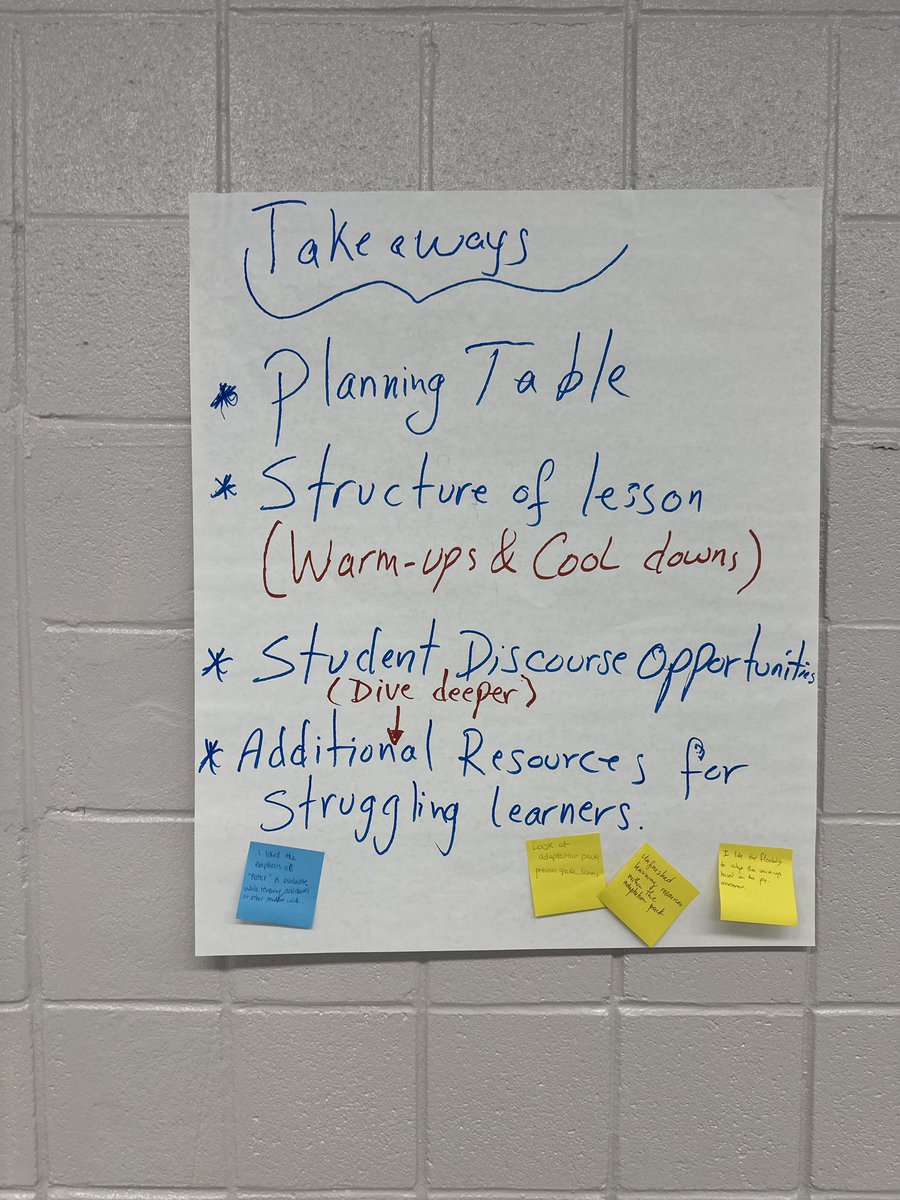 Takeaways
* Planning Table
* Structure of lesson
(Warm-ups & Cool downs)
* Student Discourse Opportunities
(Dive deeper)
* Additional Resources for
Struggling learners.
the
emphasis on
"notice"
at other student work
Look at
adaptation pack
previous grade
Unfinished
learning resources
within the
adaptation pack
I like the flexibility
to adapt the warm-ups
based on the pre-
assessment.